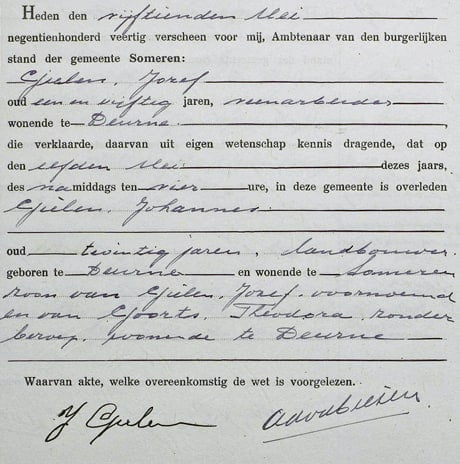 Heden den vijftienden Mei
negentienhonderd veertig verscheen voor mij, Ambtenaar van den burgerlijken
stand der gemeente Someren:
Gielen, Jozef
oud een en vijftig jaren, veenarbeider
wonende te Deurne
die verklaarde, daarvan uit eigen wetenschap kennis dragende, dat op
den elfden Mei dezes jaars,
des namiddags ten vier ure, in deze gemeente is overleden
Gielen, Johannes
oud twintig jaren, landbouwer
geboren te Deurne en wonende te Someren
zoon van Gielen, Jozef, voornoemd
en van Goorts, Theodora, zonder
beroep, wonende te Deurne
Waarvan akte, welke overeenkomstig de wet is voorgelezen.
J Gielen